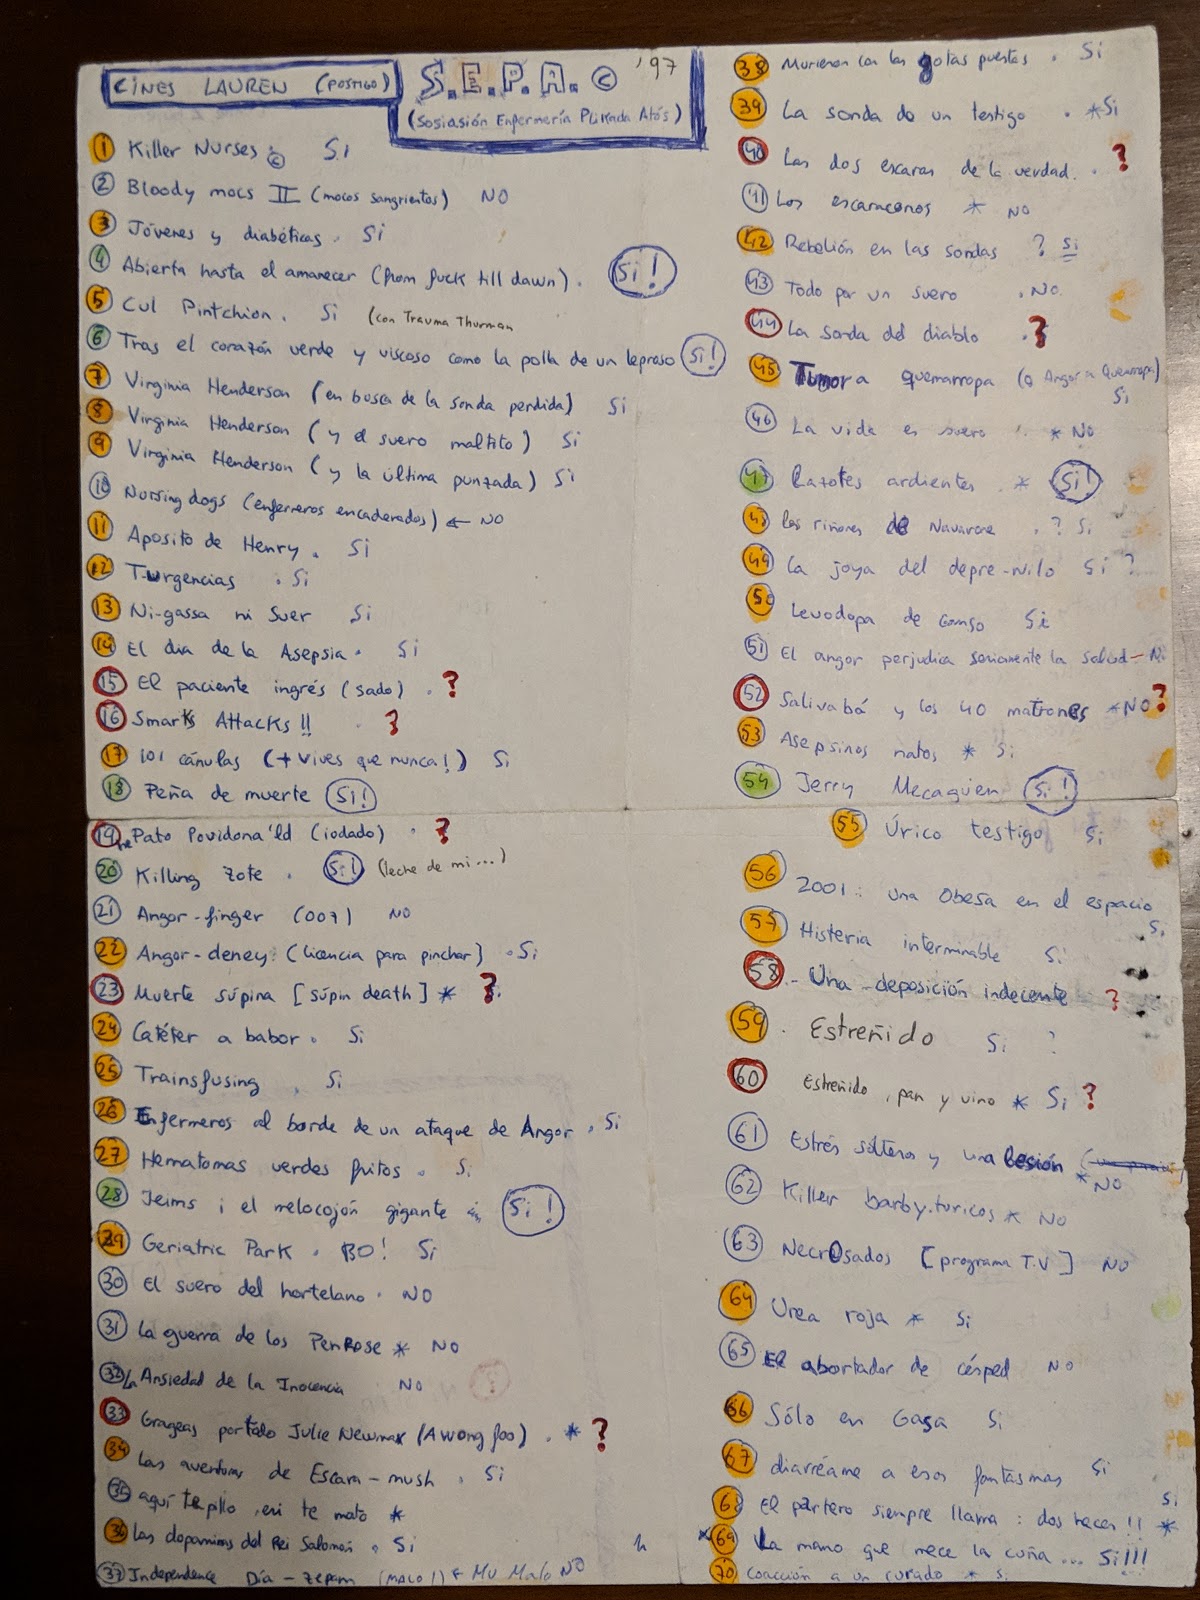 CINES LAUREN (POSTIGO)
S.E.P.A. © '97
(Sosiasión Enfermería Plikada Atós)
1 Killer Nurses © Si
2 Bloody mocs II (mocos sangrientos) NO
3 Jóvenes y diabéticas. Si
4 Abierta hasta el amanecer (from fuck till dawn). Si!
5 Cul Pintchion. Si (con Trauma Thurman
6 Tras el corazón verde y viscoso como la polla de un leproso Si!
7 Virginia Henderson (en busca de la sonda perdida) Si
8 Virginia Henderson (y el suero maltito) Si
9 Virginia Henderson (y la última punzada) Si
10 Nursing dogs (enfermeros encadenados) ← NO
11 Aposito de Henry. Si
12 T-urgencias. Si
13 Ni-gassa ni Suer Si
14 El dia de la Asepsia. Si
15 El paciente ingrés (sado). ?
16 Smarts Attacks!! ?
17 101 cánulas (+ vives que nunca!) Si
18 Peña de muerte Si!
19 Pato Povidona'ld (iodado). ?
20 Killing Zote. Si! (leche de mi...)
21 Angor-finger (007) NO
22 Angor-deney. (licencia para pinchar). Si
23 Muerte súpina [súpin death] * ?
24 Catéter a babor. Si
25 Trainsfusing. Si
26 Enfermeros al borde de un ataque de Angor. Si
27 Hematomas verdes fritos. Si
28 Jeims i el melocojón gigante Si!
29 Geriatric Park. BO! Si
30 El suero del hortelano. NO
31 La guerra de los Penrose * NO
32 La Ansiedad de la Inocencia NO
33 Grageas por tódo Julie Newmar (A wong foo). * ?
34 Las aventuras de Escara-mush. Si
35 aquí te pllo, en te mato *
36 Las dopaminas del Rei Salomón. Si
37 Independence Día-zepam (MALO!) ← Mu Malo NO
38 Murieron con las gotas puestas. Si
39 La sonda de un testigo. * Si
40 Las dos escaras de la verdad. ?
41 Los escaraconos * NO
42 Rebelión en las sondas ? Si
43 Todo por un suero. NO.
44 La sonda del diablo. ?
45 Tumor a quemarropa (o Angor a Quemarropa) Si
46 La vida es suero * NO
47 Razotes ardientes. * Si!
48 Los riñones de Navarone. ? Si
49 La joya del depre-nilo Si ?
50 Levodopa de Ganso Si
51 El angor perjudica seriamente la salud - No
52 Salivabá y los 40 matrones * NO ?
53 Asepsinos natos * Si
54 Jerry Mecagüen Si!
55 Úrico testigo Si
56 2001: una Obesa en el espacio Si
57 Histeria interminable Si
58 .- Una deposición indecente ?
59 . Estreñido Si ?
60 Estreñido, pan y vino * Si ?
61 Estrés solteros y una lesión * NO
62 Killer barby.turicos * NO
63 Necrosados [programa T.V] NO
64 Urea roja * Si
65 El abortador de césped NO
66 Sólo en Gasa Si
67 diarréame a esos fantasmas Si
68 El partero siempre llama: dos veces!! * Si
*69 La mano que mece la cuña... Si!!!
70 Coacción a un curado * Si